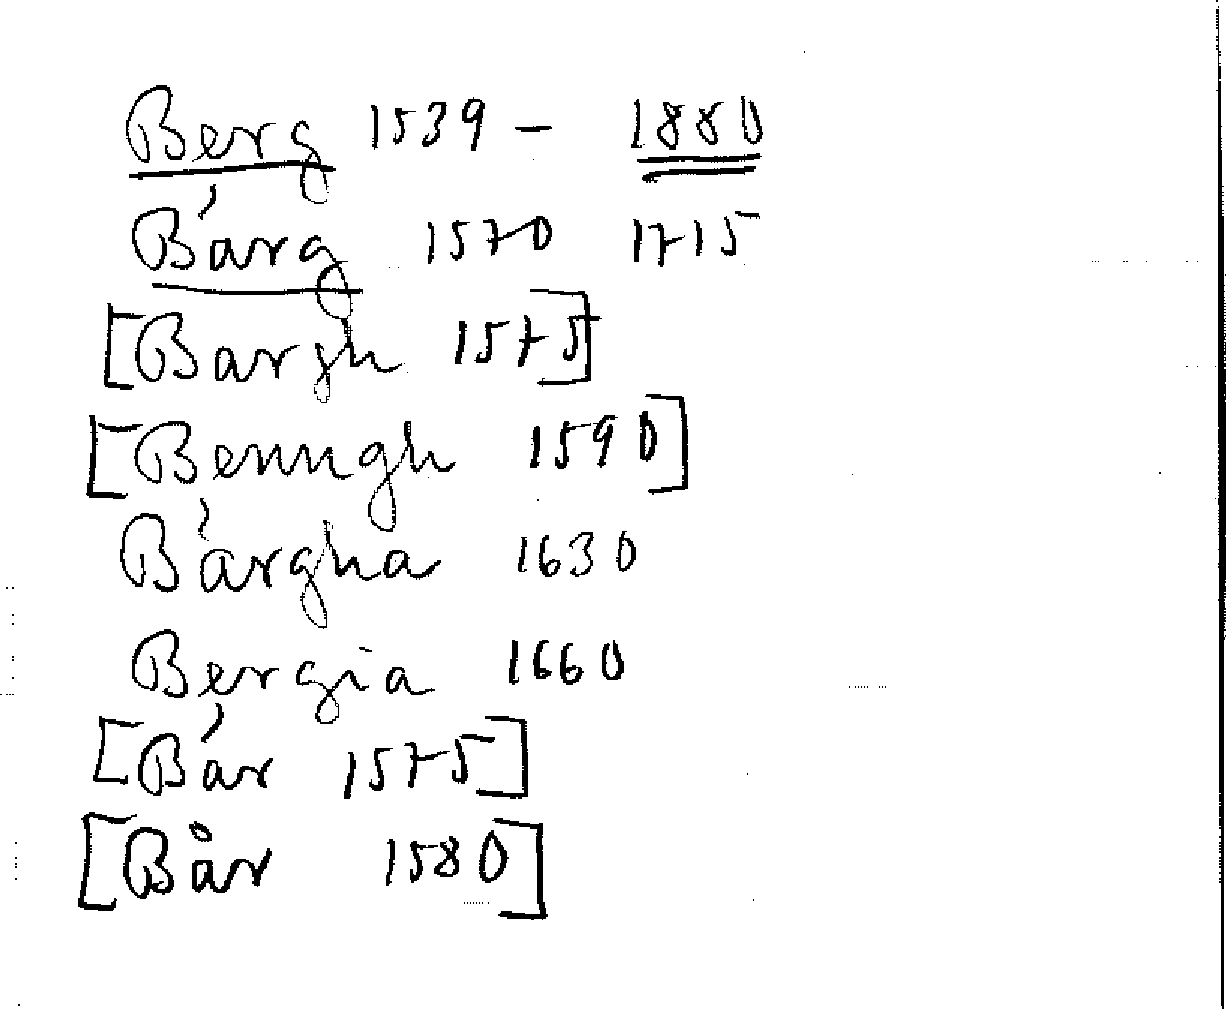 Berg 1539 – 1880
Bárg 1570 1715
[Bargh 1575]
[Benngh 1590]
Bàrgha 1630
Bergia 1660
[Bár 1575]
[Bår 1580]